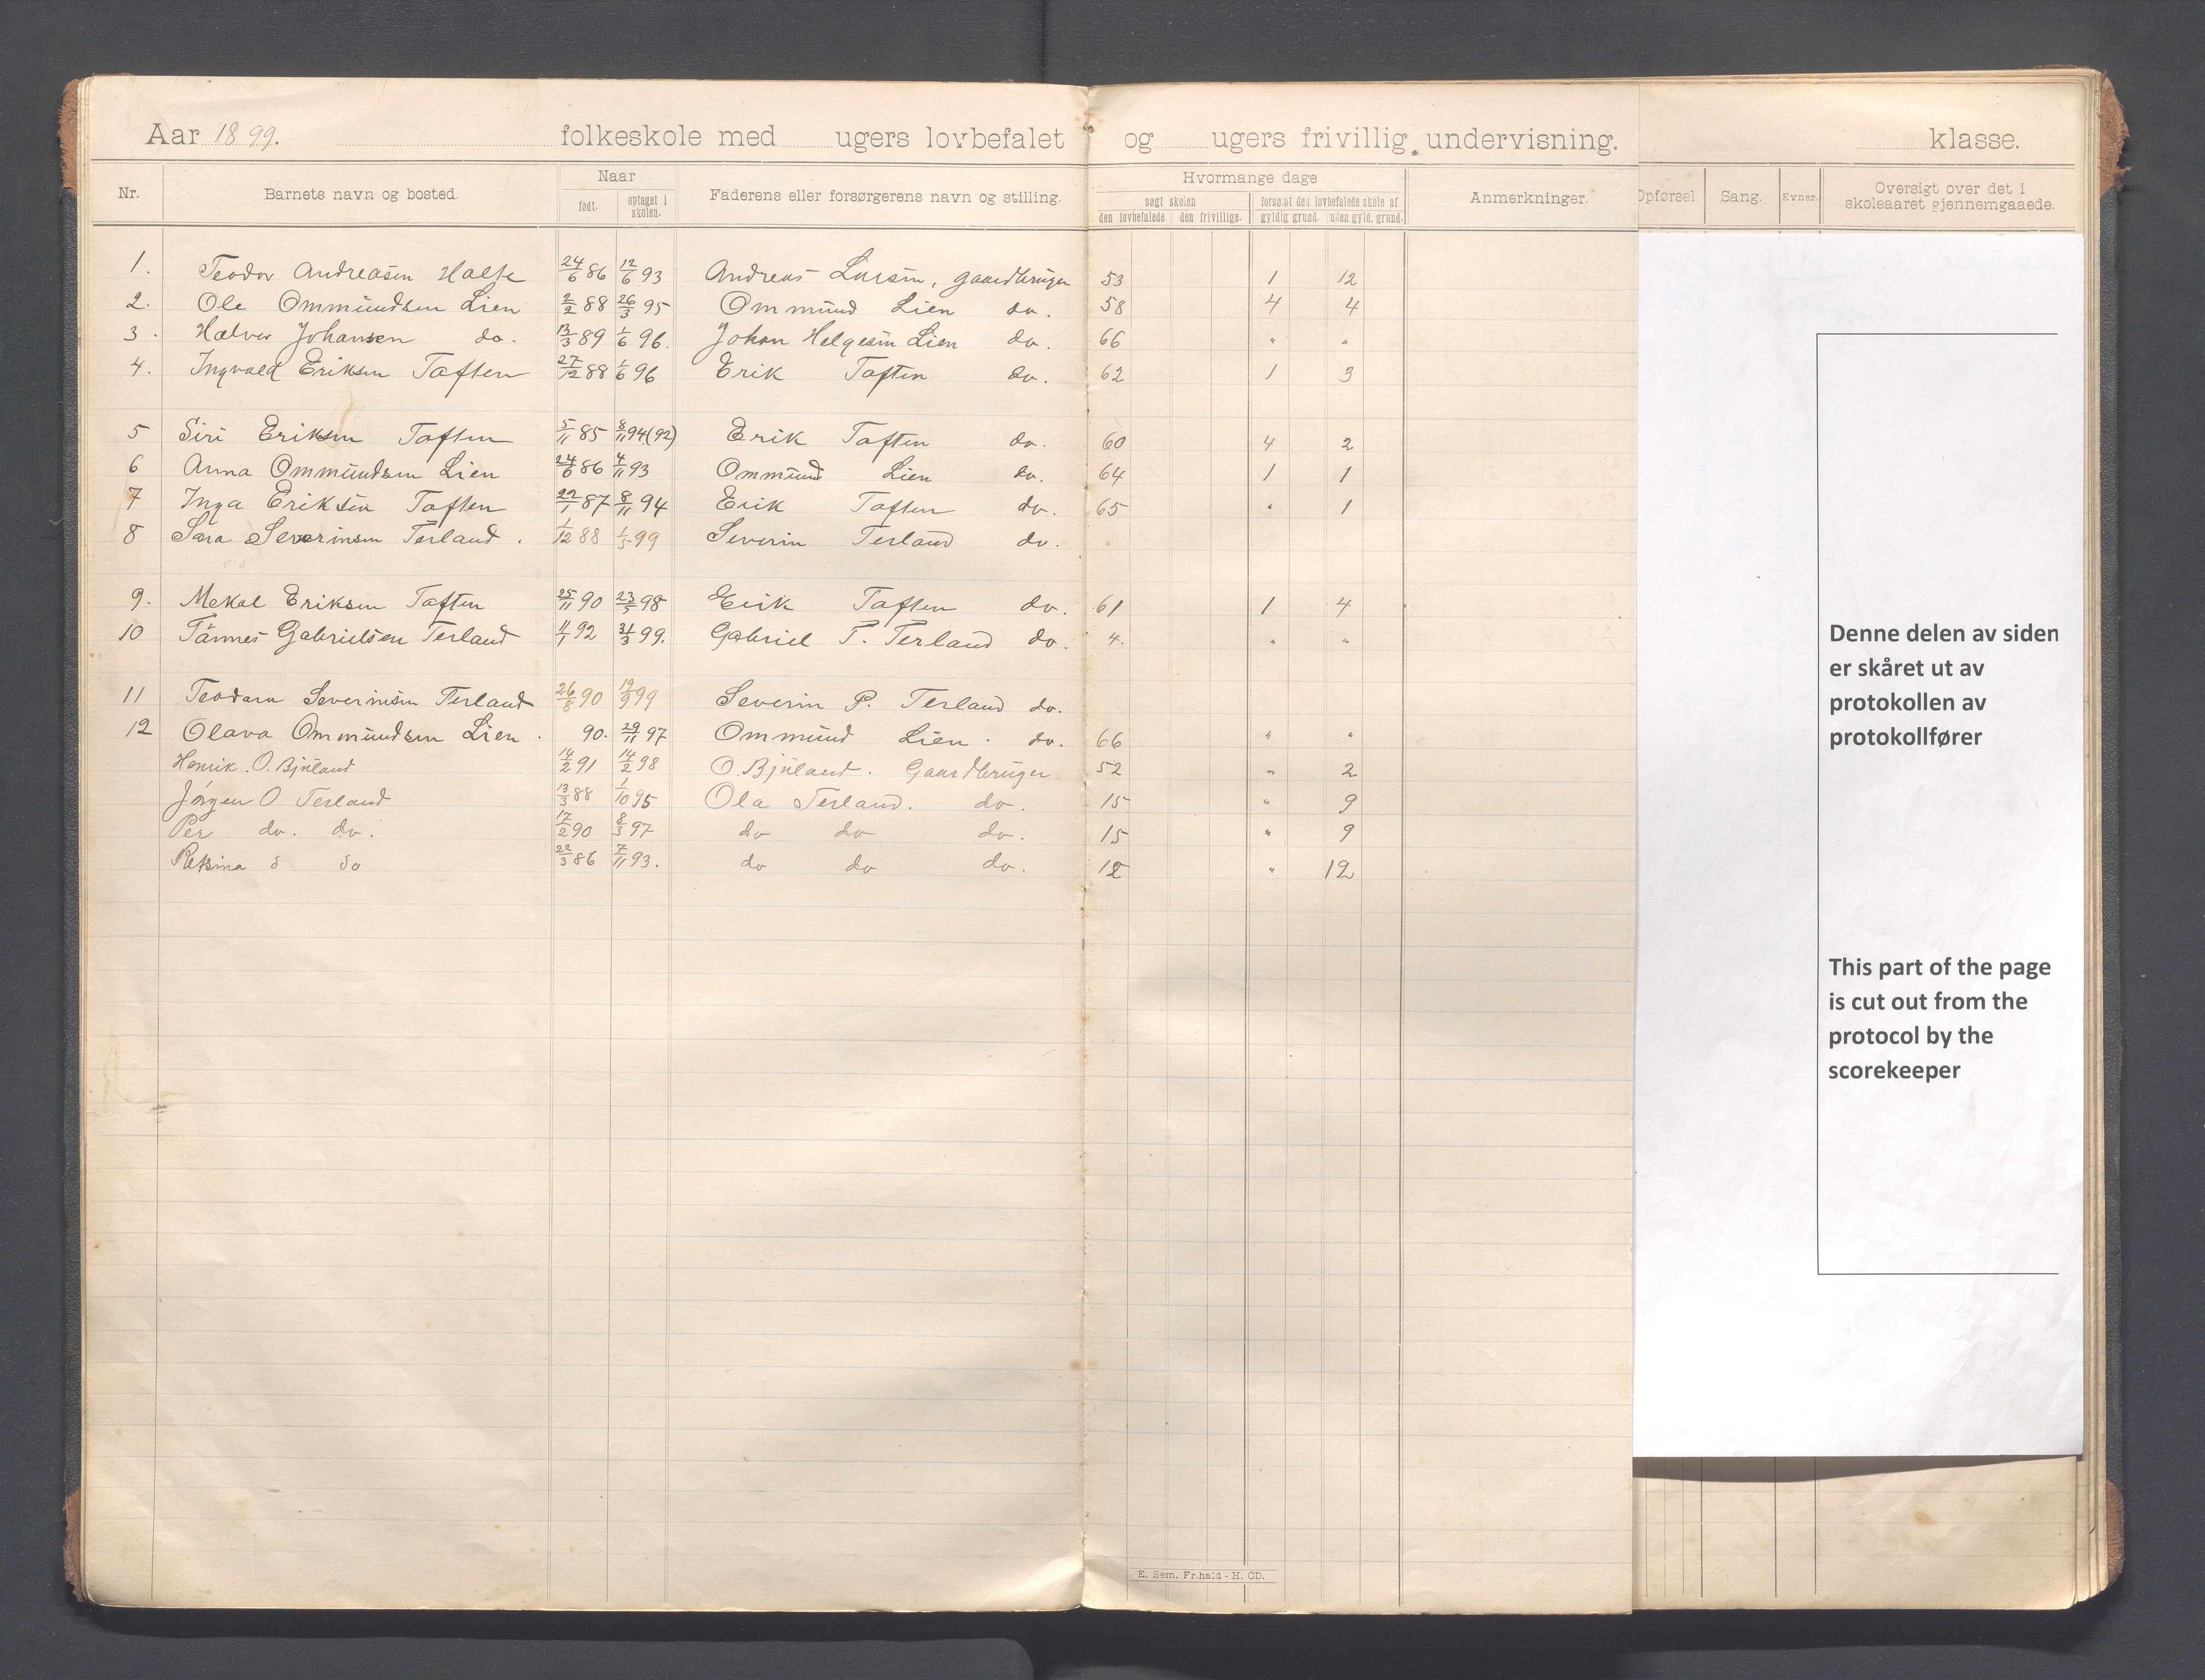 Aar 1899. folkeskole med ugers lovbefalet og ugers frivillig undervisning. klasse.
Nr. Barnets navn og bosted. Naar født. optaget i skolen. Faderens eller forsørgerens navn og stilling. Hvormange dage søgt skolen den lovbefalede den frivillige. forsømt den lovbefalede skole af gyldig grund. uden gyld. grund. Anmerkninger. Opførsel Sang. Evner. Oversigt over det i skoleaaret gjennemgaaede.
1. Teodor Andreasen 24/6 86 12/6 93 Andreas Larsen, gaardbruger 53 1 12
2. Ole Ommundsen Lien 2/2 88 26/3 95 Ommund Lien do. 58 4 4
3. Halvor Johansen do. 13/3 89 1/6 96. Johan Helgesen Lien do. 66 " "
4. Ingvald Eriksen Taften 27/12 88 1/6 96 Erik Taften do. 62 1 3
5 Siri Eriksen Taften 5/11 85 8/11 94 (92) Erik Taften do. 60 4 2
6 Anna Ommundsen Lien 24/6 86 4/11 93 Ommund Lien do. 64 1 1
7 Inga Eriksen Taften 22/1 87 8/11 94 Erik Taften do. 65 " 1
8 Sara Severinsen Terland. 1/12 88 1/5 99 Severin Terland do.
9. Mekal Eriksen Taften 25/11 90 23/5 98 Erik Taften do. 61 1 4
10 Tønnes Gabrielsen Terland 11/1 92 21/3 99. Gabriel T. Terland do. 4. " "
11 Teodara Severinsen Terland 26/8 90 19/9 99 Severin P. Terland do.
12 Olava Ommundsen Lien. 90. 29/11 97 Ommund Lien. do. 66 " "
Henrik. O. Bjuland 14/2 91 14/2 98 O. Bjuland. Gaardbruger 52 " 2
Jörgen O Terland 13/3 88 1/10 95 Ola Terland. do. 15 " 9
Per do. do. 17/2 90 8/3 97 do do do. 15 " 9
22/3 86 7/11 93. do do do. 12 " 12
E. Sem. Fr.hald - H. CD.
Denne delen av siden
er skåret ut av
protokollen av
protokollfører
This part of the page
is cut out from the
protocol by the
scorekeeper